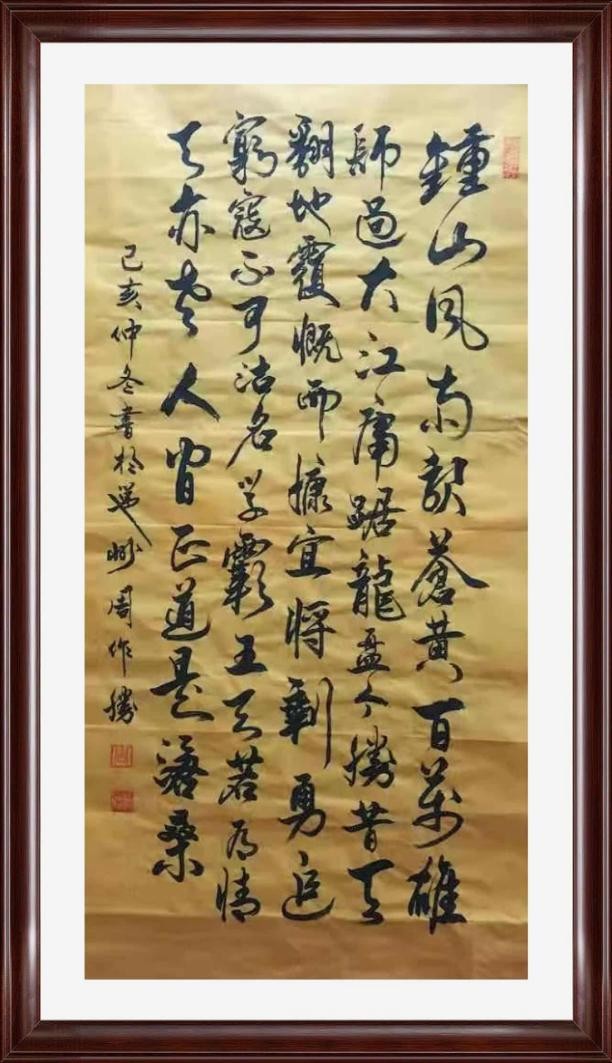 鍾山风雨起蒼黄百萬雄
師過大江虎踞龍盘今勝昔天
翻地覆慨而慷宜將剩勇追
窮寇不可沽名学霸王天若有情
天亦老人间正道是滄桑
己亥仲冬書於州周作勝